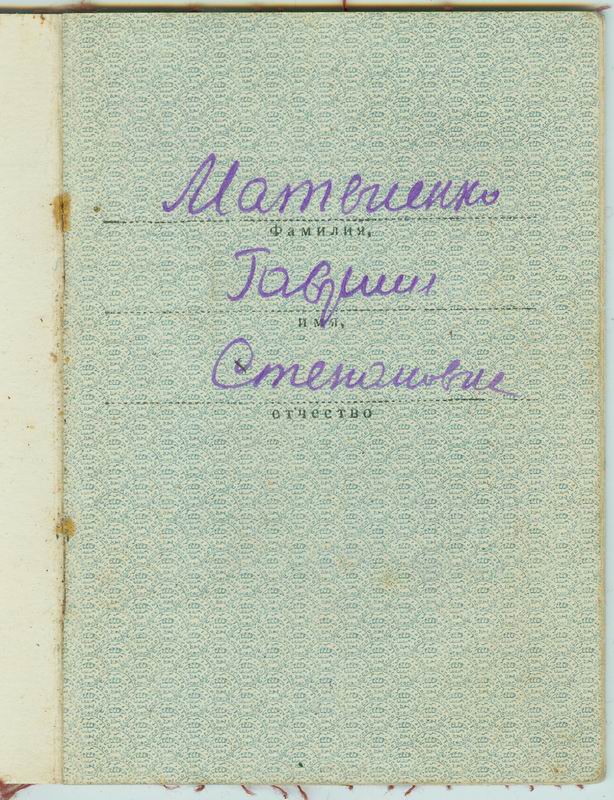 Матвиенко
Фамилия,
Гавриил
имя,
Степанович
отчество